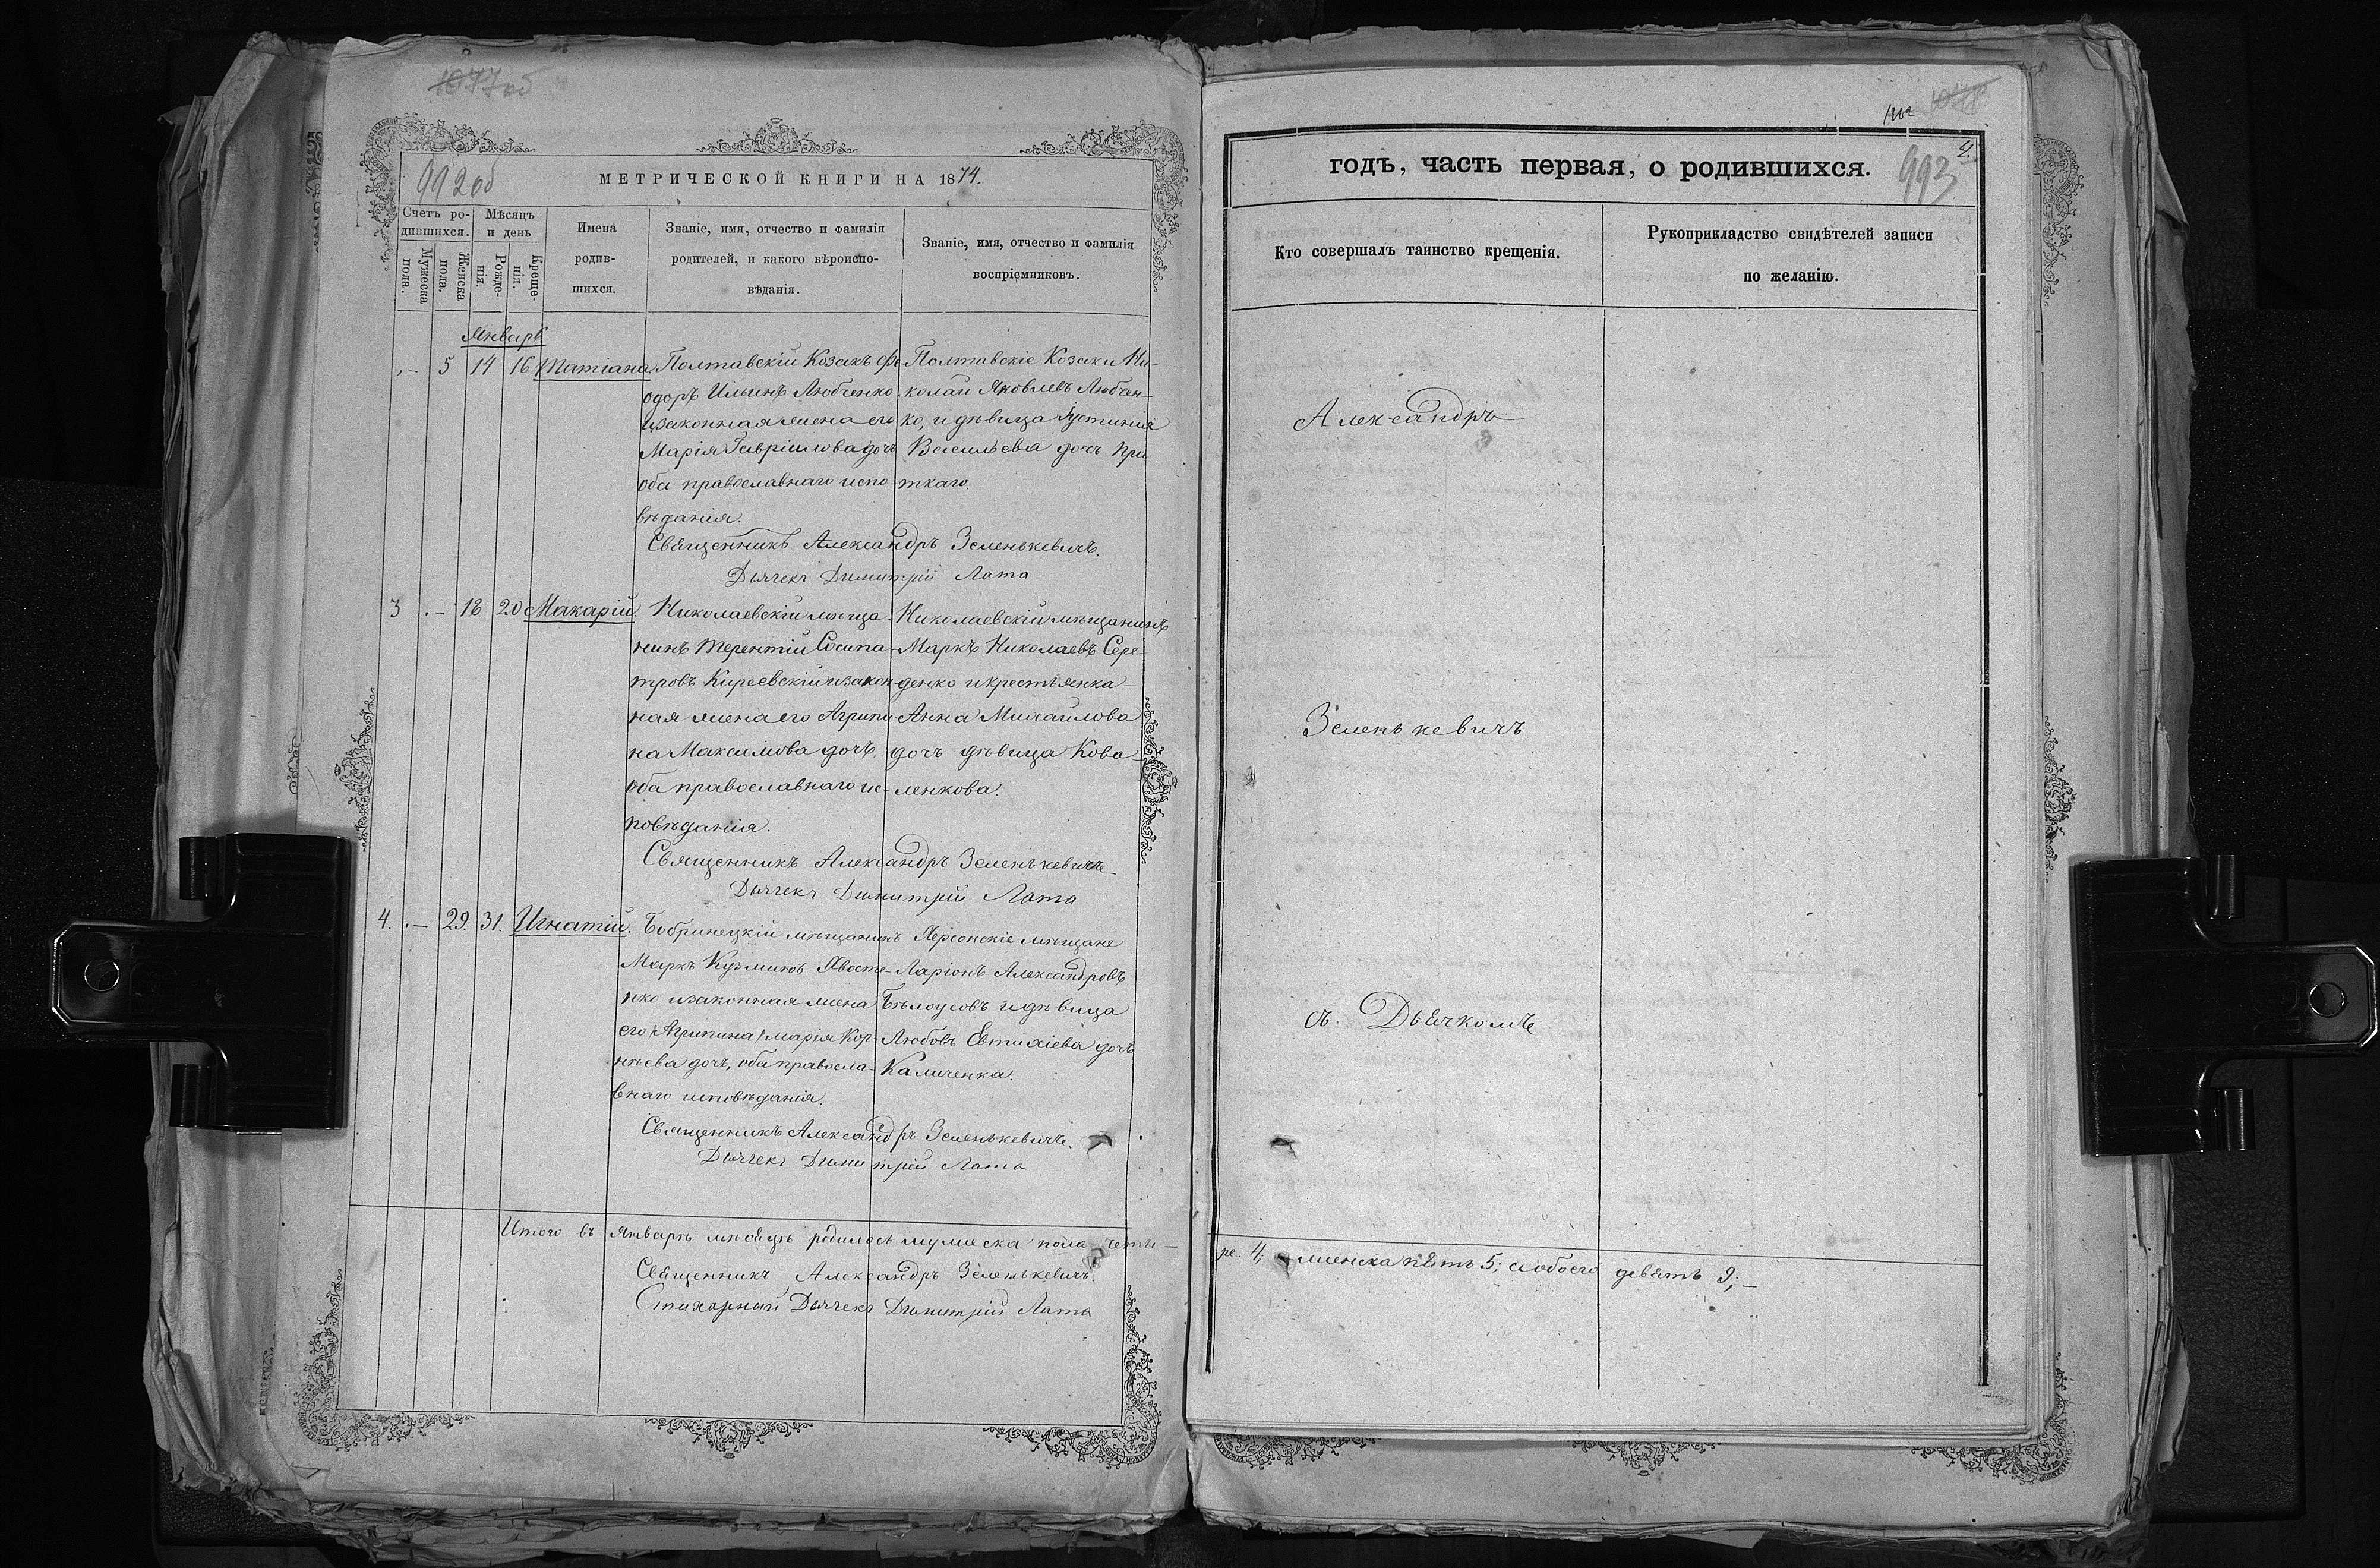 1077об
992об
МЕТРИЧЕСКОЙ КНИГИ НА 1874.
Счетъ ро-
дившихся.
Мужеска
пола.
Женска
пола.
Мѣсяцъ
и день
Рожде-
нія.
Креще-
нія.
Имена
родив-
шихся.
Званіе, имя, отчество и фамилія
родителей, и какого вѣроиспо-
вѣданія.
Званіе, имя, отчество и фамилія
воспріемниковъ.
Январь
„– 5 14 16 Татіана
Полтавскій Козакъ Ѳе-
одоръ Ильинъ Любченко
и законная жена его
Марія Гавріилова дочъ
оба православнаго испо-
вѣданія.
Полтавскіе Козаки Ни-
колай Яковлевъ Любчен-
ко, и дѣвица Іустинія
Васильева дочъ При
ткаго.
Священникъ Александръ Зеленькевичъ.
Дьячекъ Димитрій Лата
3 .– 18 20 Макарій.
Николаевскій мѣща-
нинъ Терентій Сосипа-
тровъ Киреевскій и закон-
ная жена его Агрипи
на Максимова дочъ,
оба православнаго ис-
повѣданія.
Николаевскій мѣщанинъ
Маркъ Николаевъ Сере-
денко и крестьянка
Анна Михайлова
дочъ дѣвица Кова-
ленкова.
Священникъ Александръ Зеленькевичъ
Дьячекъ Димитрій Лата
4. .– 29. 31. Игнатій.
Бобринецкій мѣщанинъ
Маркъ Кузминъ Хвосте-
нко и законная жена
его /Агрипина/ Марія Кор-
нѣева дочъ, оба правосла-
внаго исповѣданія.
Херсонскіе мѣщане
Ларіонъ Александровъ
Бѣлоусовъ и дѣвица
Любовь Евтихіева дочъ
Каличенка.
Священникъ Александръ Зеленькевичъ.
Дьячекъ Димитрій Лата
Итого въ Январѣ мѣсяцѣ родилось мужеска пола четы-
Священникъ Александръ Зеленькевичъ.
Стихарный Дьячекъ Димитрій Лата
4.
993
годъ, часть первая, о родившихся.
Кто совершалъ таинство крещенія.
Рукоприкладство свидѣтелей записи
по желанію.
Александръ
Зеленькевичъ
съ. Дьячкомъ
ре. 4; женска пять 5; и обоего девять 9;–